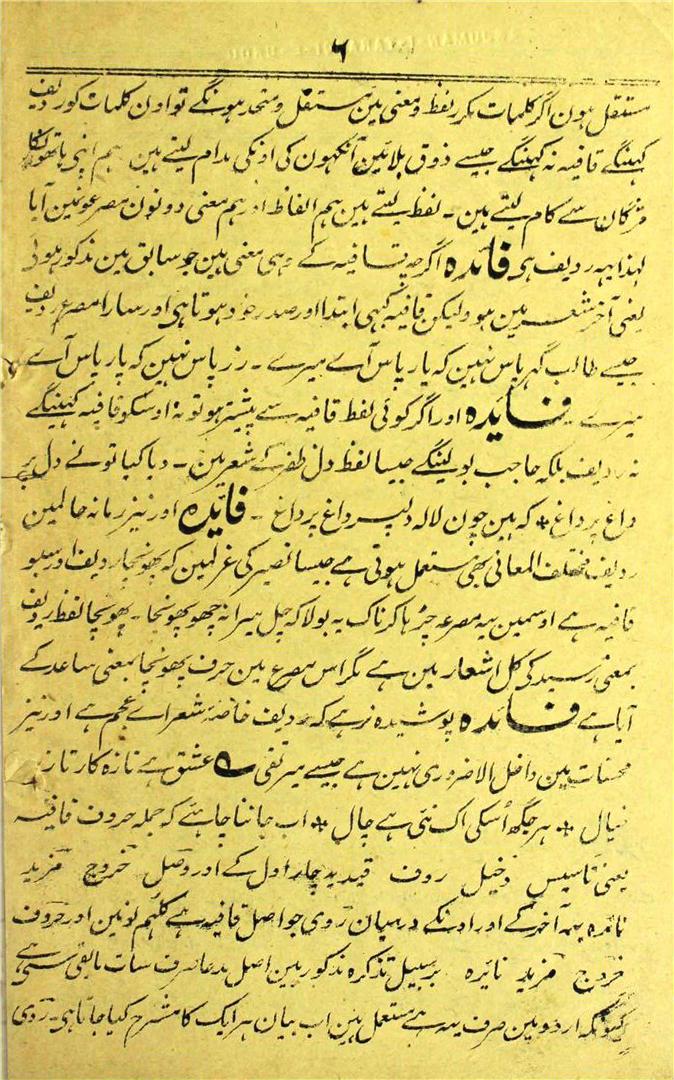 ۶
مستقل ہون اگر کلمات مکرر لفظ و معنی مین مستقل و متحد ہونگے تو اون کلمات کو ردیف
کہینگے قافیہ نہ کہینگے جیسے ذوق بلائین آنکھون کی اونکی مدام لیتے ہین ہم اپنی ہاتھونکا
مژگان سے کام لیتے ہین ۔ لفظ لیتے ہین ہم الفاظ اور ہم معنی دونون مصرعونمین آیا
لہذا یہہ ردیف ہی فائدہ اگرچہ قافیہ کے وہی معنی ہین جو سابق مین مذکور ہوئی
یعنی آخر شعر مین ہو ولیکن قافیہ کبہی ابتدا اور صدر مین ہوتا ہی اور سارا مصرع ردیف
جیسے طالب گہر پاس نہین کہ یار پاس آے میرے ۔ زر پاس نہین کہ یار پاس آے
میرے فائدہ اور اگر کوئی لفظ قافیہ سے پیشتر ہو تو نہ اوسکو قافیہ کہینگے
نہ ردیف بلکہ حاجب بولینگے جیسا لفظ دل ظفر کے شعر مین ۔ دیا کیا تونے دل پہ
داغ پر داغ ٭ کہ ہین چون لالہ دلپر داغ پر داغ ۔ فائدہ اور نیز زمانہ حالمین
ردیف مختلف المعانی بھی مستعمل ہوتی ہے جیسا نصیر کی غزلمین کہ پھونچا ردیف اور سبو
قافیہ ہے اوسمین یہ مصرعہ چڑہا کر ناک یہ بولا کہ چل میرا نہ چھو پھونچا ۔ پھونچا لفظ ردیف
بمعنی رسید کی کل اشعار مین ہے مگر اس مصرع مین حرف پھونچا بمعنی ساعد کے
آیا ہے فائدہ پوشیدہ نرہے کہ ردیف خاصۂ شعراے عجم ہے اور نیز
محسنات مین داخل الا ضروری نہین ہے جیسے میر تقی ؎ عشق ہے تازہ کار تازہ
خیال ٭ ہر جگھ اُسکی اک نئی ہے چال ٭ اب جاننا چاہئے کہ جملہ حروف قافیہ
یعنی تاسیس دخیل ردف قید یہ چار اول کے اور وصل خروج مزید
نائرہ یہہ آخر کے اور اونکے درمیان روی جو اصل قافیہ ہے کلہم نو ہین اور حروف
خروج مزید نائرہ برسبیل تذکرہ مذکور ہین اصل مدعا صرف سات مابقی سے ہے
کیونکہ اردو مین صرف یہہ ہے مستعمل ہین اب بیان ہر ایک کا مشرح کیا جاتا ہی ۔ روی